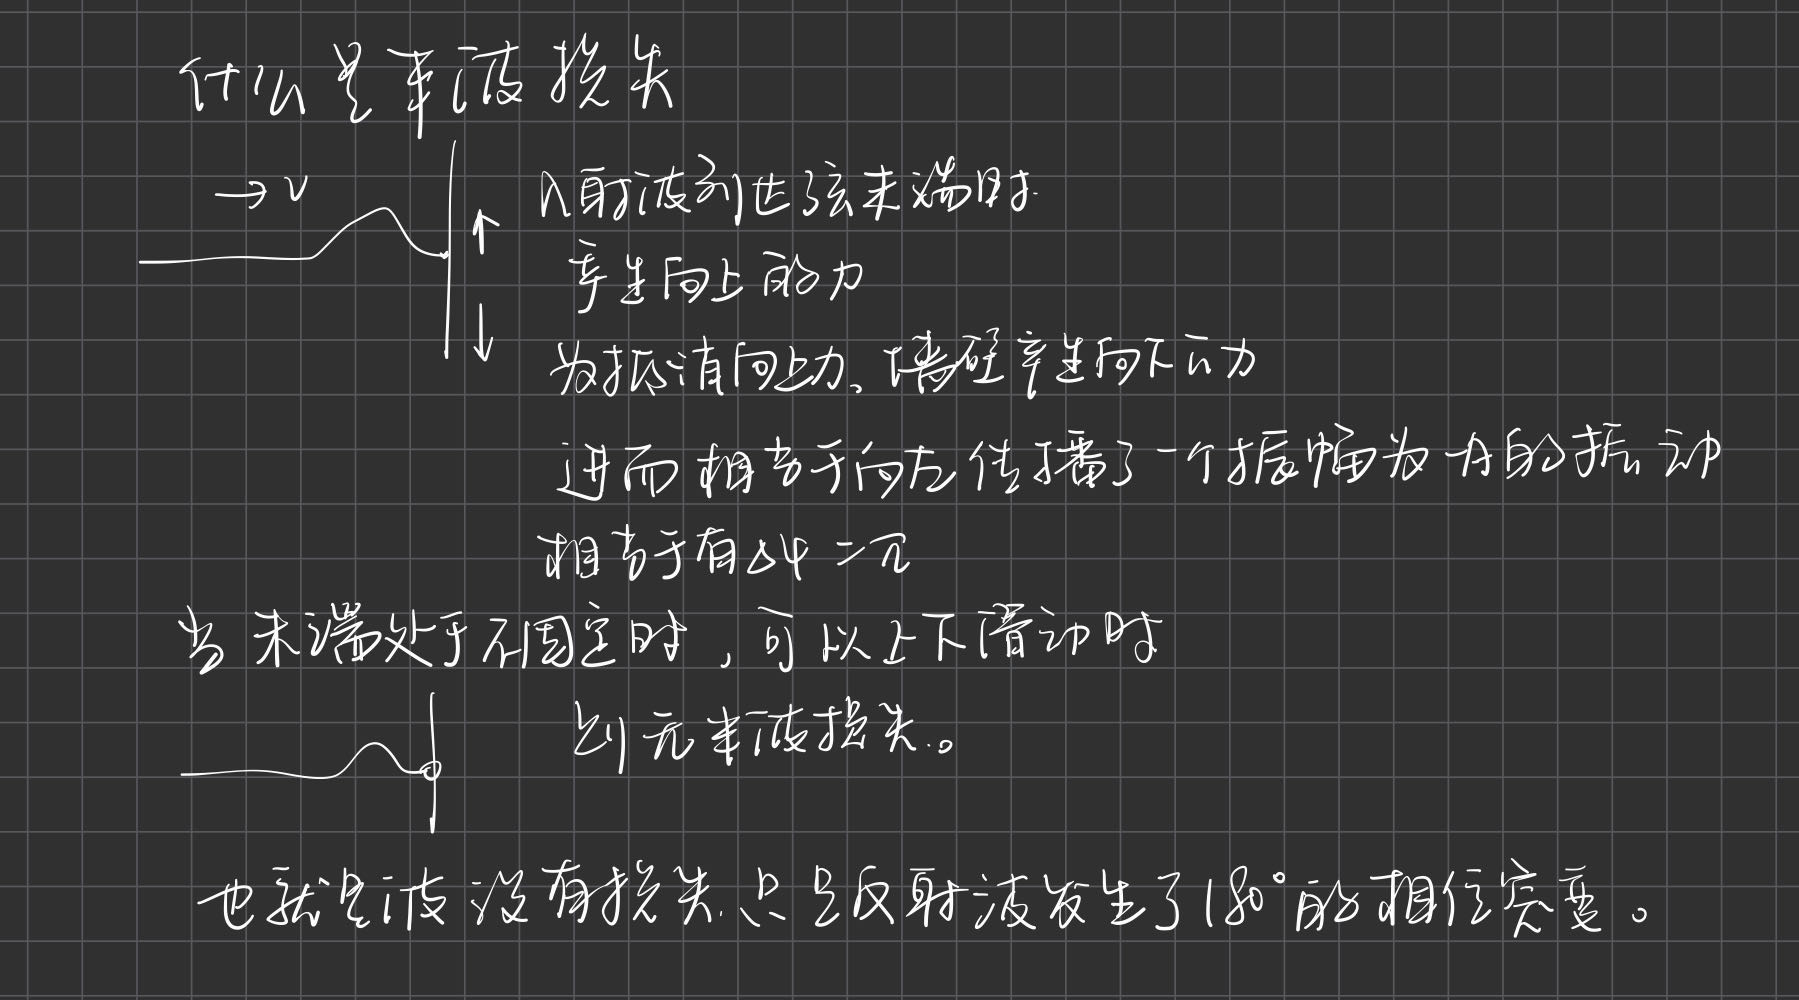 什么是半波损失
→ v
入射波到达弦末端时
产生向上的力
为抵消向上力、墙壁产生向下的力
进而相当于向左传播了一个振幅为-A的振动
相当于有Δφ=π
当末端处于不固定时，可以上下滑动时
则无半波损失。
也就是波没有损失.只是反射波发生了180°的相位突变。